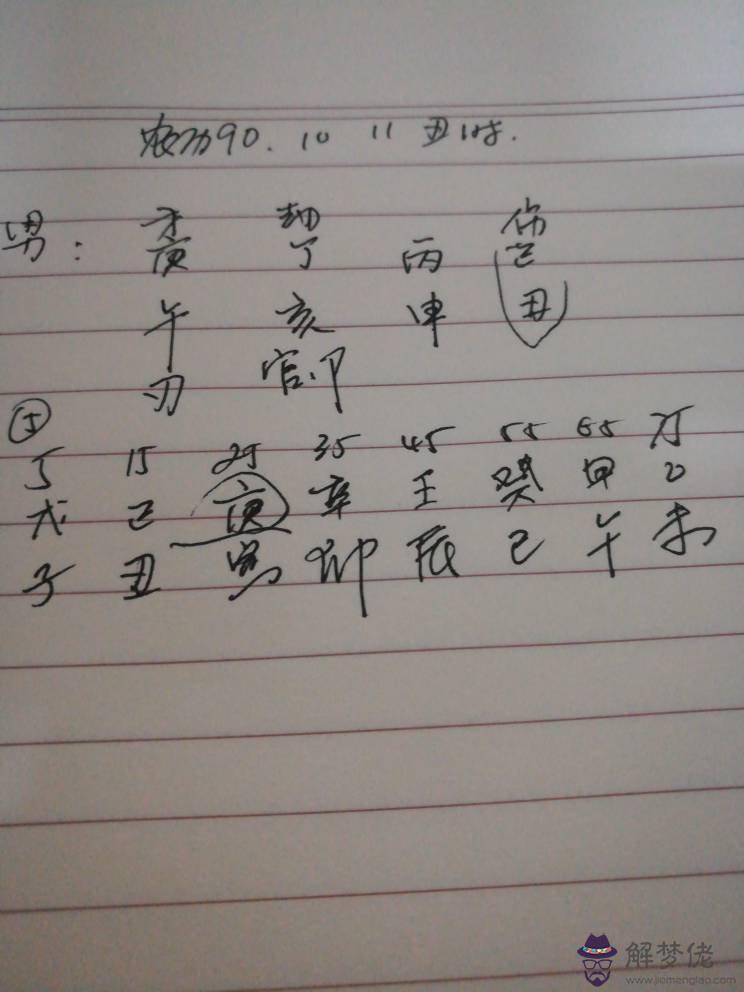 农历90.10 11 丑时.
才 劫 伤
男: 庚 丁 丙 己
午 亥 申 丑
刃 官印
⑤ 15 25 35 45 55 65 75
戊 己 庚 辛 王 癸 甲 己
子 丑 寅 卯 辰 巳 午 未
解梦佬
www.jiemenglao.com